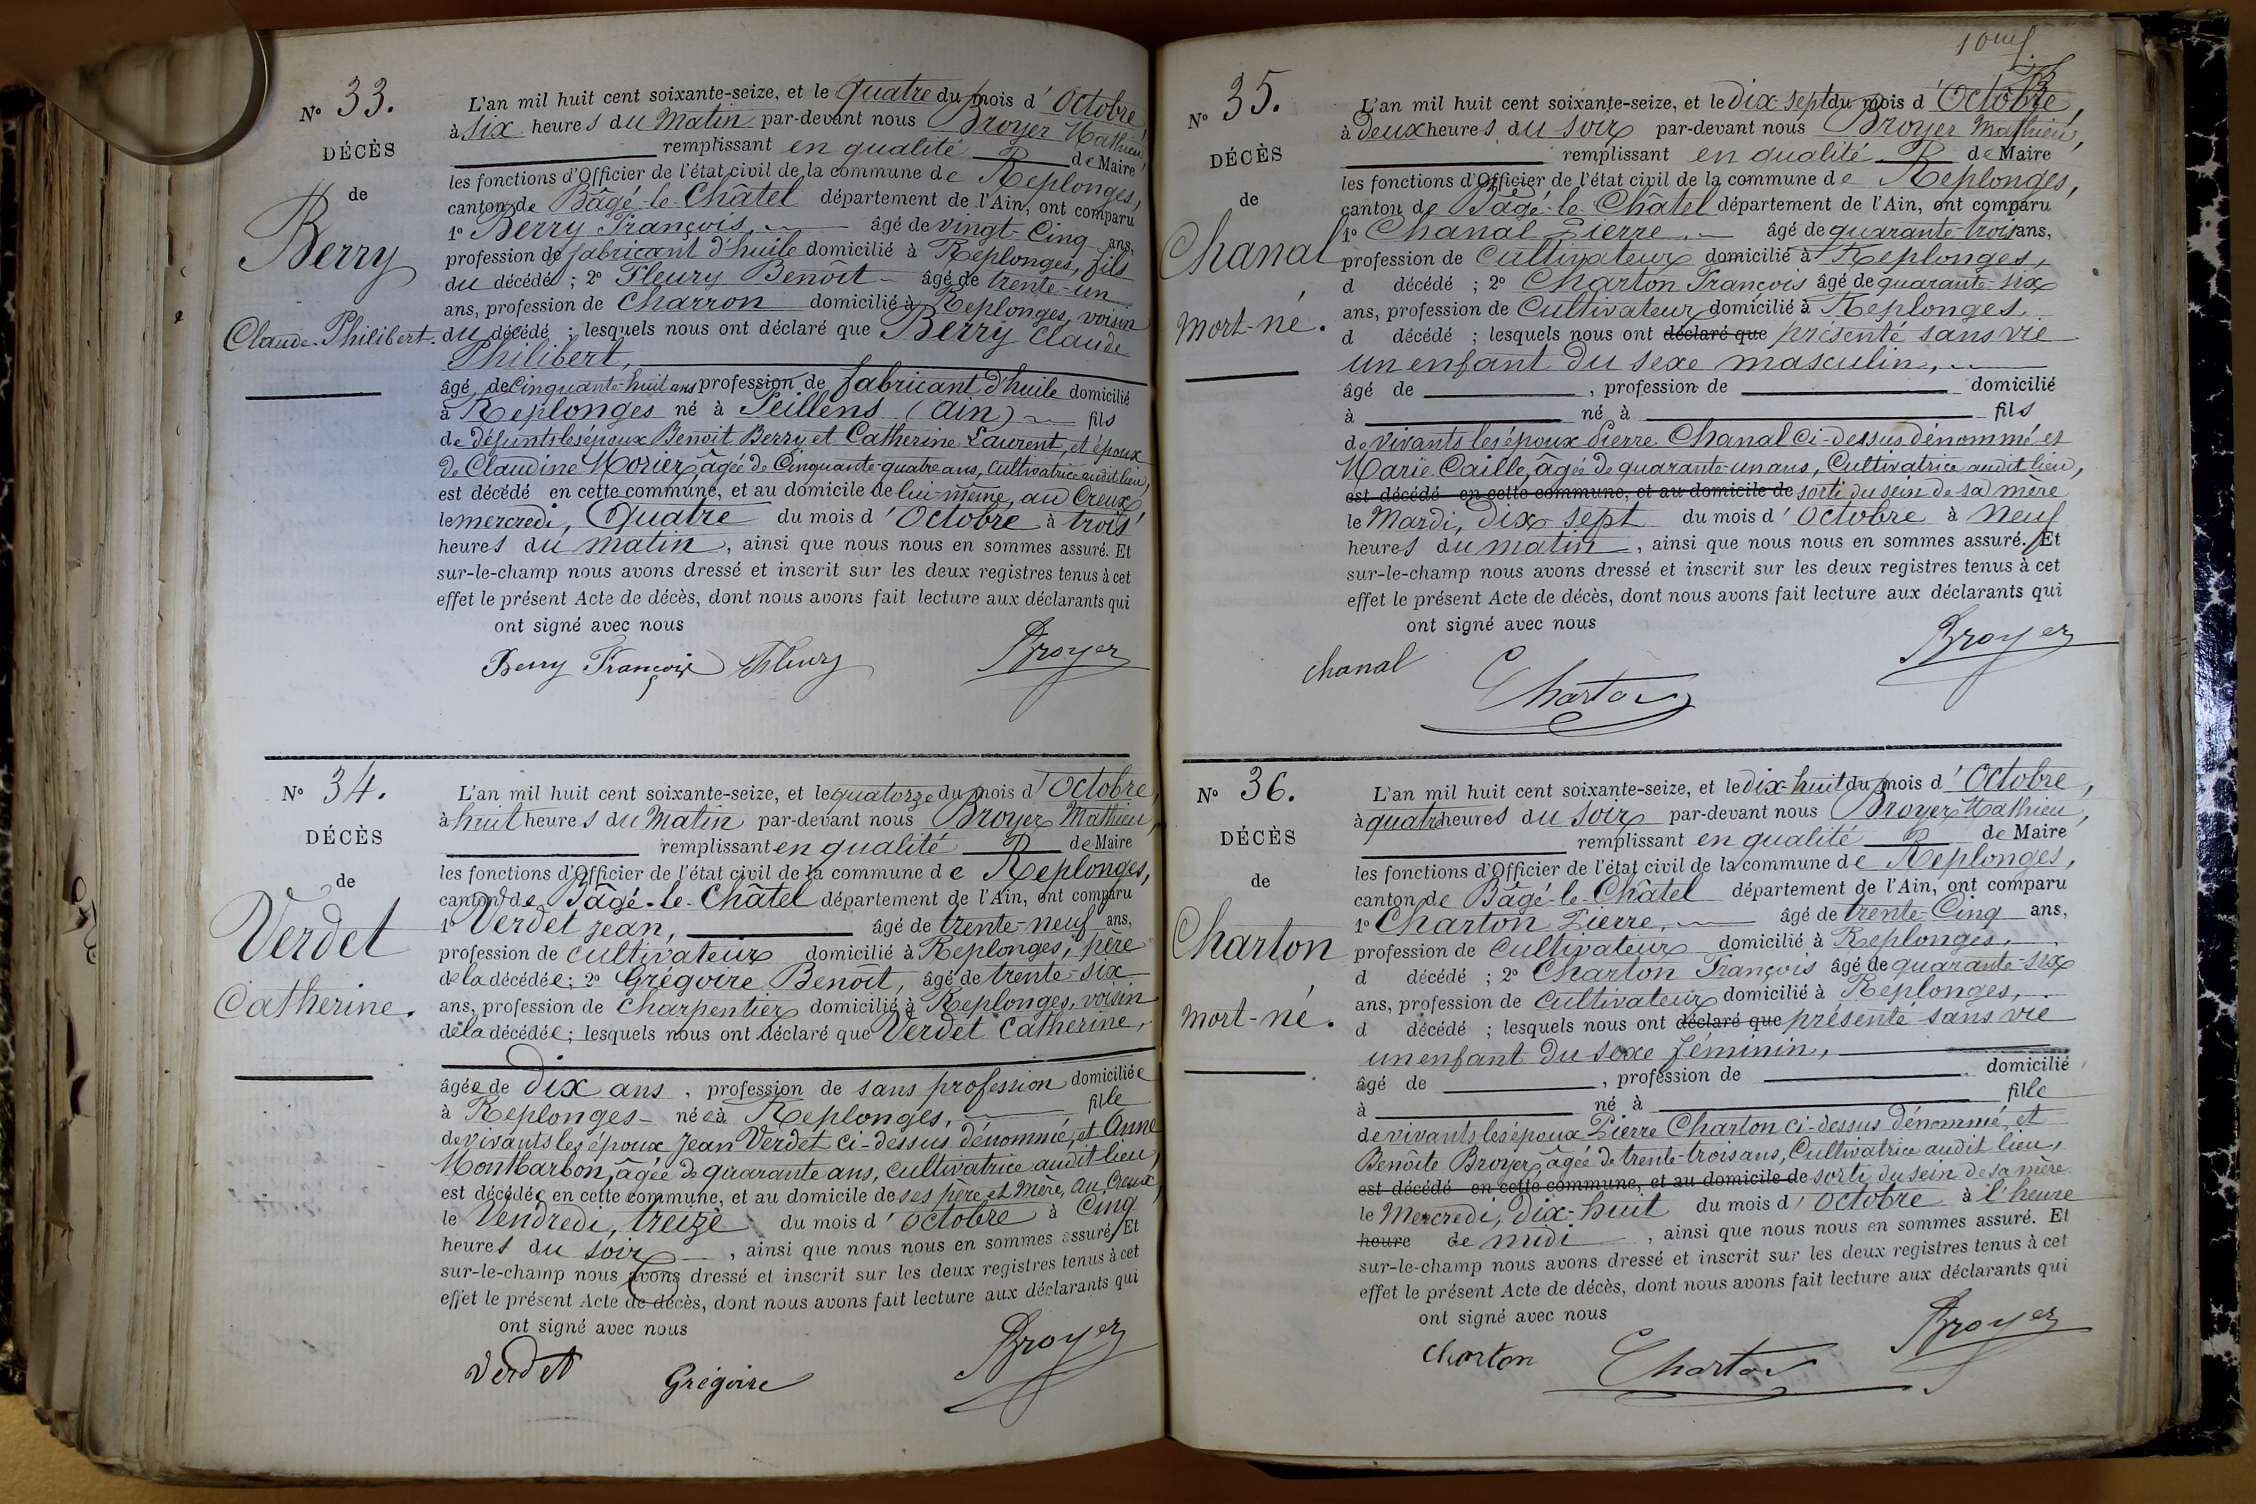 N° 33.
DÉCÈS
de
Berry
Claude-Philibert.
L'an mil huit cent soixante-seize, et le quatre du mois d'Octobre,
à six heures du matin par-devant nous Broyer Mathieu,
remplissant en qualité de Maire
les fonctions d'Officier de l'état civil de la commune de Replonges,
canton de Bâgé-le-Châtel département de l'Ain, ont comparu
1° Berry François, âgé de vingt-cinq ans,
profession de fabricant d'huile domicilié à Replonges, fils
du décédé ; 2° Fleury Benoît âgé de trente-un
ans, profession de charron domicilié à Replonges, voisin
du décédé ; lesquels nous ont déclaré que Berry Claude
Philibert,
âgé de cinquante-huit ans profession de fabricant d'huile domicilié
à Replonges né à Peillens (Ain) fils
de défunts les époux Benoit Berry et Catherine Laurent, et époux
de Claudine Morier, âgée de cinquante-quatre ans, cultivatrice audit lieu,
est décédé en cette commune, et au domicile de lui-même, au Creux
le mercredi, quatre du mois d'Octobre à trois
heures du matin, ainsi que nous nous en sommes assuré. Et
sur-le-champ nous avons dressé et inscrit sur les deux registres tenus à cet
effet le présent Acte de décès, dont nous avons fait lecture aux déclarants qui
ont signé avec nous
Berry François Fleury Broyer
N° 34.
DÉCÈS
de
Verdet
Catherine.
L'an mil huit cent soixante-seize, et le quatorze du mois d'Octobre,
à huit heures du matin par-devant nous Broyer Mathieu,
remplissant en qualité de Maire
les fonctions d'Officier de l'état civil de la commune de Replonges,
canton de Bâgé-le-Châtel département de l'Ain, ont comparu
1° Verdet Jean, âgé de trente-neuf ans,
profession de cultivateur domicilié à Replonges, père
de la décédée ; 2° Grégoire Benoît, âgé de trente-six
ans, profession de charpentier domicilié à Replonges, voisin
de la décédée ; lesquels nous ont déclaré que Verdet Catherine,
âgée de dix ans, profession de sans profession domiciliée
à Replonges née à Replonges, fille
de vivants les époux Jean Verdet ci-dessus dénommé, et Anne
Montbarbon, âgée de quarante ans, cultivatrice audit lieu,
est décédée en cette commune, et au domicile de ses père et mère, au Creux
le Vendredi, treize du mois d'Octobre à cinq
heures du soir, ainsi que nous nous en sommes assuré. Et
sur-le-champ nous avons dressé et inscrit sur les deux registres tenus à cet
effet le présent Acte de décès, dont nous avons fait lecture aux déclarants qui
ont signé avec nous
Verdet Grégoire Broyer
N° 35.
DÉCÈS
de
Chanal
Mort-né.
L'an mil huit cent soixante-seize, et le dix-sept du mois d'Octobre,
à deux heures du soir par-devant nous Broyer Mathieu,
remplissant en qualité de Maire
les fonctions d'Officier de l'état civil de la commune de Replonges,
canton de Bâgé-le-Châtel département de l'Ain, ont comparu
1° Chanal Pierre, âgé de quarante-trois ans,
profession de cultivateur domicilié à Replonges,
d décédé ; 2° Charton François âgé de quarante-six
ans, profession de cultivateur domicilié à Replonges.
d décédé ; lesquels nous ont déclaré que présenté sans vie
un enfant du sexe masculin,
âgé de , profession de domicilié
à né à fils
de vivants les époux Pierre Chanal ci-dessus dénommé et
Marie Caille, âgée de quarante-un ans, cultivatrice audit lieu,
est décédé en cette commune, et au domicile de sorti du sein de sa mère
le Mardi, dix-sept du mois d'Octobre à neuf
heures du matin, ainsi que nous nous en sommes assuré. Et
sur-le-champ nous avons dressé et inscrit sur les deux registres tenus à cet
effet le présent Acte de décès, dont nous avons fait lecture aux déclarants qui
ont signé avec nous
chanal Charton Broyer
N° 36.
DÉCÈS
de
Charton
Mort-né.
L'an mil huit cent soixante-seize, et le dix-huit du mois d'Octobre,
à quatre heures du soir par-devant nous Broyer Mathieu,
remplissant en qualité de Maire
les fonctions d'Officier de l'état civil de la commune de Replonges,
canton de Bâgé-le-Châtel département de l'Ain, ont comparu
1° Charton Pierre, âgé de trente-cinq ans,
profession de cultivateur domicilié à Replonges,
d décédé ; 2° Charton François âgé de quarante-six
ans, profession de cultivateur domicilié à Replonges,
d décédé ; lesquels nous ont déclaré que présenté sans vie
un enfant du sexe féminin,
âgé de , profession de domicilié
à né à fille
de vivants les époux Pierre Charton ci-dessus dénommé, et
Benoîte Broyer, âgée de trente-trois ans, cultivatrice audit lieu,
est décédé en cette commune, et au domicile de sorti du sein de sa mère
le Mercredi, dix-huit du mois d'Octobre à l'heure
heure de midi, ainsi que nous nous en sommes assuré. Et
sur-le-champ nous avons dressé et inscrit sur les deux registres tenus à cet
effet le présent Acte de décès, dont nous avons fait lecture aux déclarants qui
ont signé avec nous
charton Charton Broyer